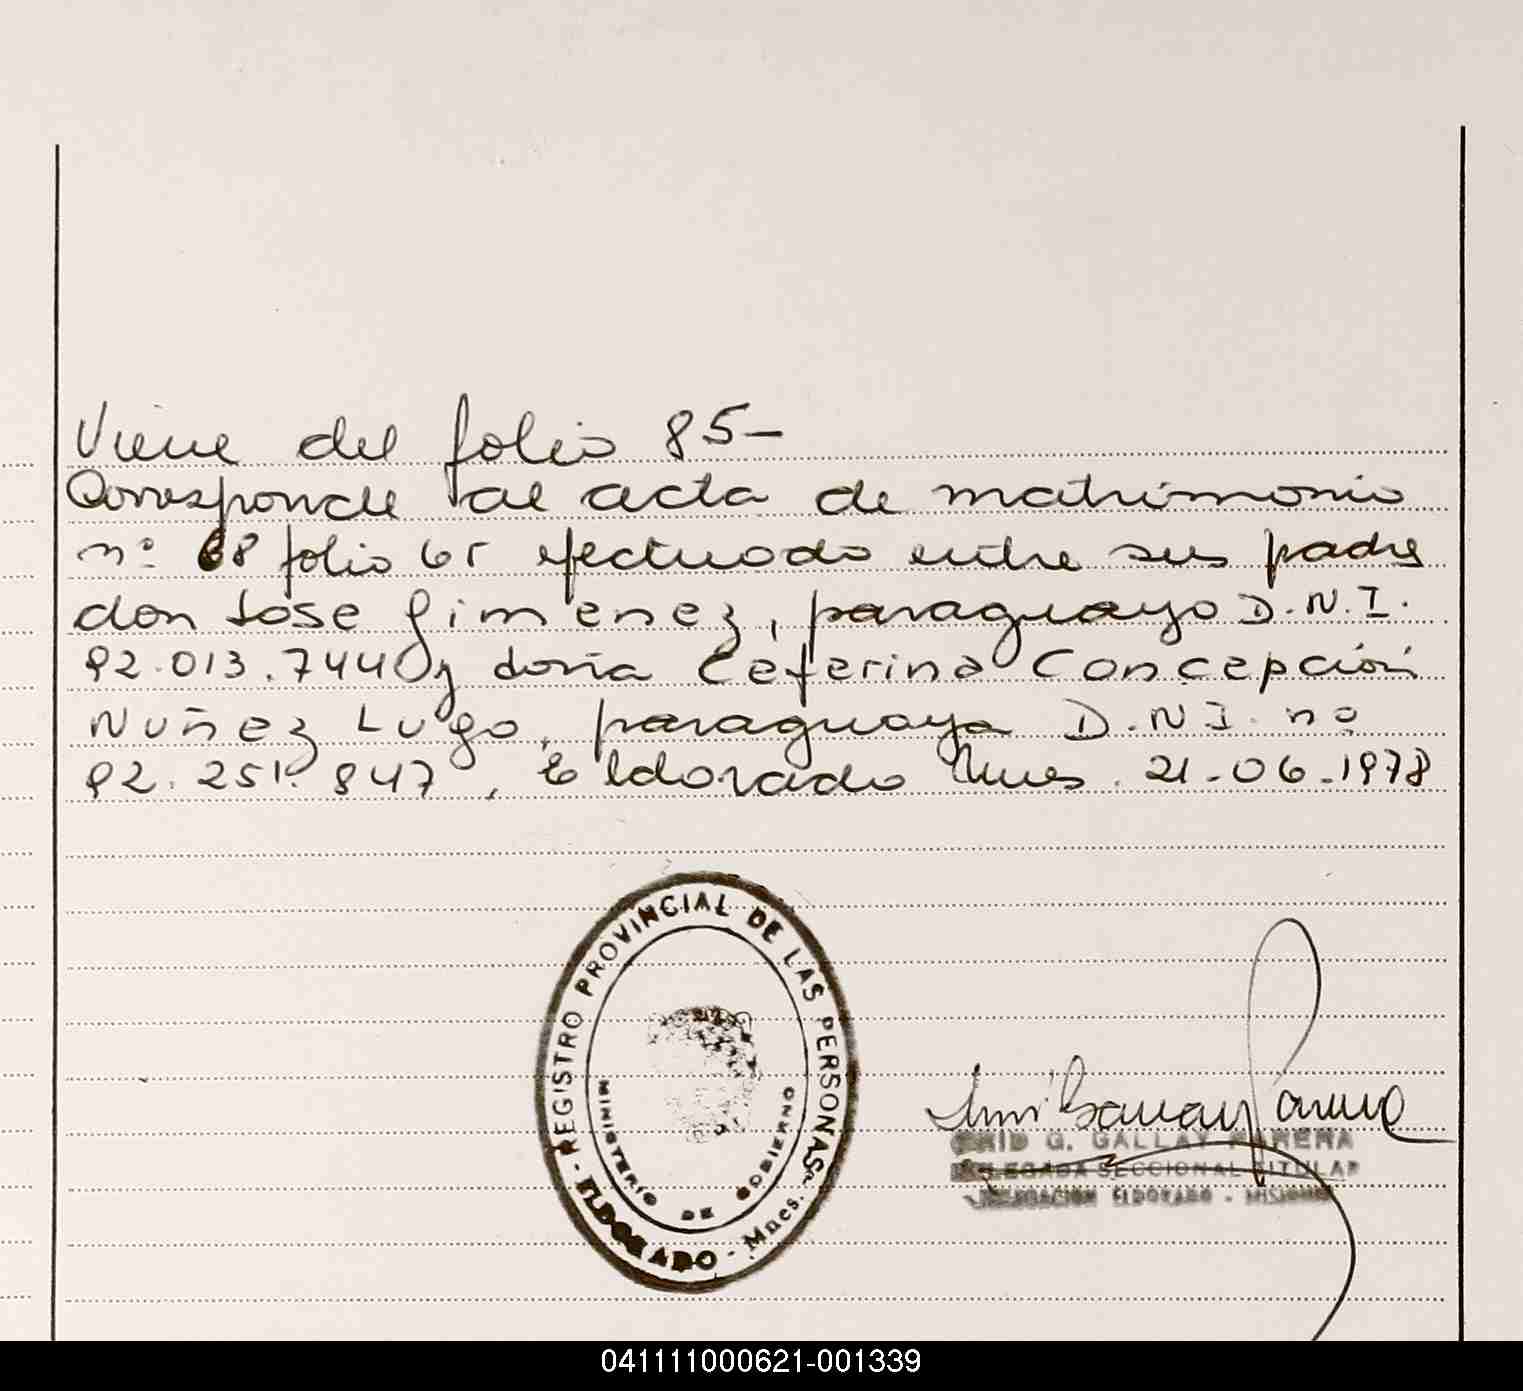 Viene del folio 85-
Corresponde al acta de matrimonio
nº 68 folio 65 efectuado entre sus padres
don Jose Gimenez, paraguayo D.N.I.
92.013.744 y doña Ceferina Concepción
Nuñez Lugo, paraguaya D.N.I. nº
92.251.847, Eldorado Mnes. 21-06-1978
REGISTRO PROVINCIAL DE LAS PERSONAS
- ELDORADO - Mnes.
MINISTERIO DE GOBIERNO
G. GALLAY PARERA
DELEGADA SECCIONAL TITULAR
DELEGACION ELDORADO - MISIONES
041111000621-001339